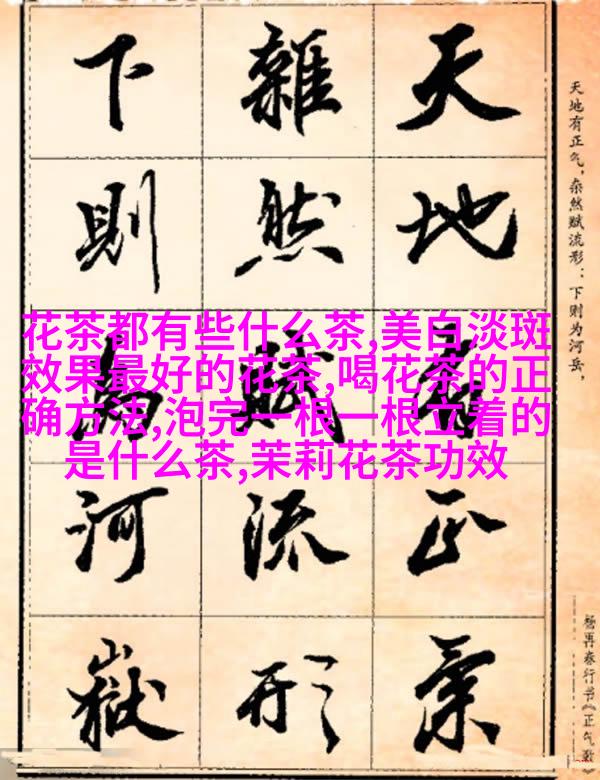 天地有正氣
雜然賦流形
下則為河嶽
天地有正气，杂然赋流形：下则为河岳，
杨再春行书《正气歌》
花茶都有些什么茶,美白淡斑
效果最好的花茶,喝花茶的正
确方法,泡完一根一根立着的
是什么茶,茉莉花茶功效